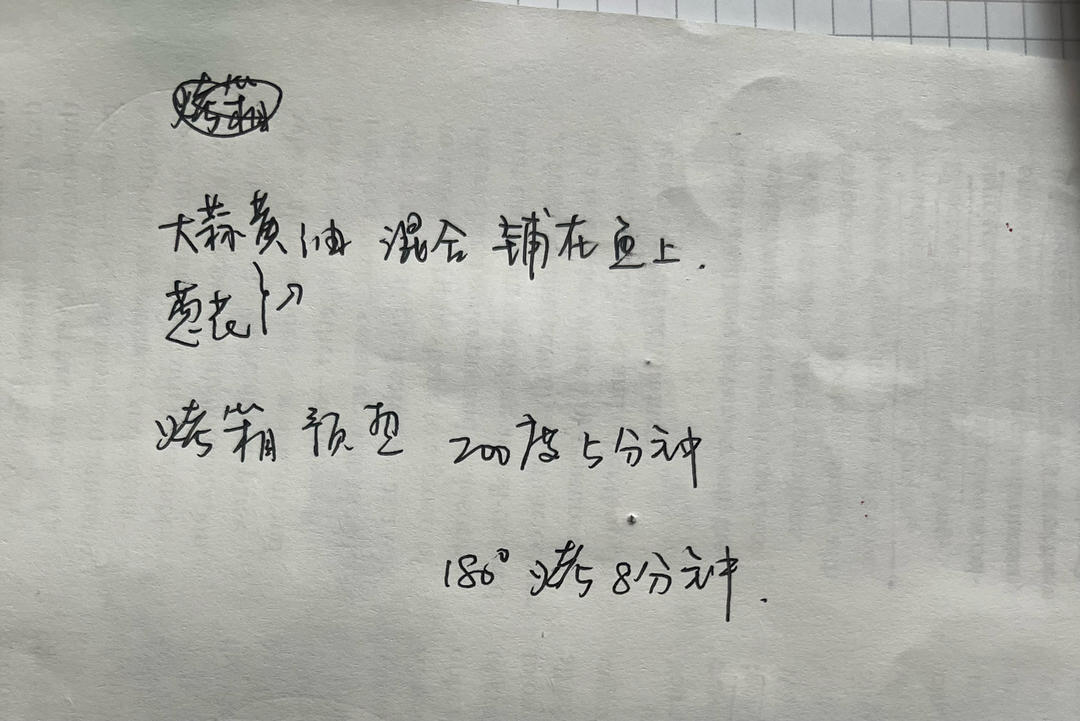 烤箱
大蒜黄油 混合 铺在鱼上.
葱花
烤箱 预热 200度 5分钟
180° 烤 8分钟.